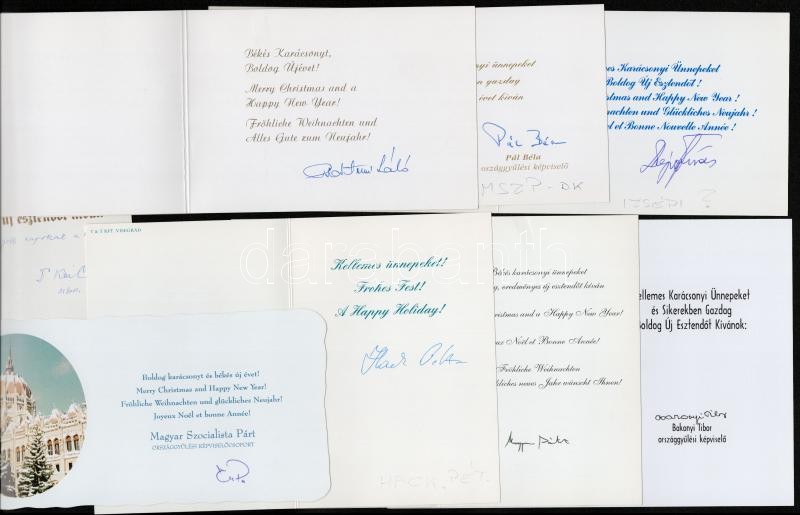 Békés Karácsonyt,
Boldog Újévet!
Merry Christmas and a
Happy New Year!
Fröhliche Weihnachten und
Alles Gute zum Neujahr!
yi ünnepeket
en gazdag
évet kíván
Pál Béla
Pál Béla
országgyűlési képviselő
MSZP-DK
ellemes Karácsonyi Ünnepeket
Boldog Új Esztendőt!
stmas and Happy New Year!
achten und Glückliches Neujahr!
el et Bonne Nouvelle Année!
IZSÉPI ?
új esztendőt
T & T KFT. VISEGRÁD
Kellemes ünnepeket!
Frohes Fest!
A Happy Holiday!
HACK PÉT.
Békés karácsonyi ünnepeket
g, eredményes új esztendőt kíván
hristmas and a Happy New Year!
ux Noël et Bonne Année!
Fröhliche Weihnachten
kliches neues Jahr wünscht Ihnen!
ellemes Karácsonyi Ünnepeket
és Sikerekben Gazdag
Boldog Új Esztendőt Kívánok:
Bakonyi Tibor
országgyűlési képviselő
Boldog karácsonyt és békés új évet!
Merry Christmas and Happy New Year!
Fröhliche Weihnachten und glückliches Neujahr!
Joyeux Noël et bonne Année!
Magyar Szocialista Párt
ORSZÁGGYŰLÉSI KÉPVISELŐCSOPORT
darabanth